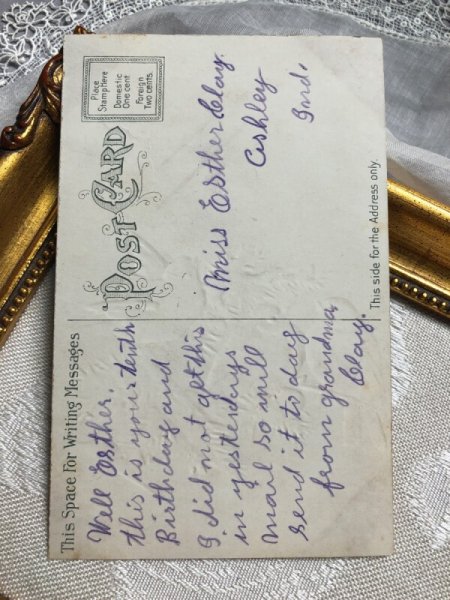 This Space For Writing Messages
Well Esther,
this is your tenth
Birthday and
I did not get this
in yesterdays
mail so will
send it to day
from grandma
Clay.
POST CARD
Place
Stamp Here
Domestic
One cent
Foreign
two cents.
Miss Esther Clay.
Ashley
Ind.
This side for the Address only.